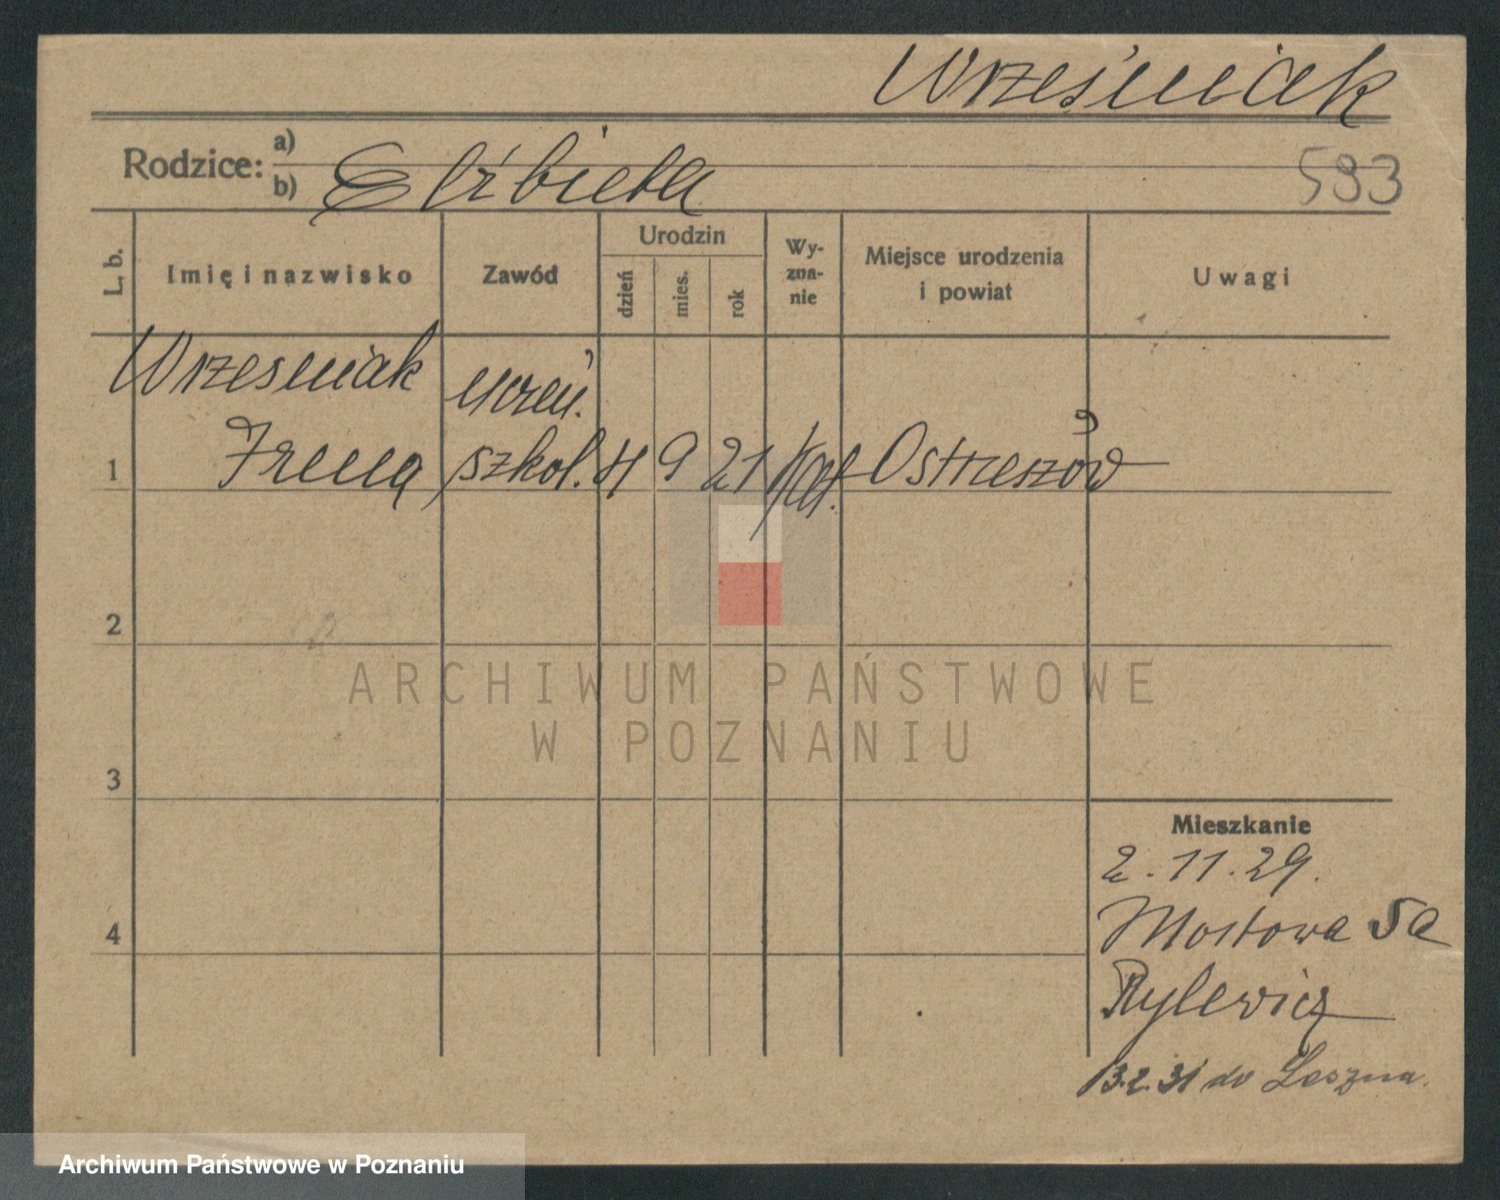 Wrześniak
Rodzice: a)
b) Elżbieta
593
L. b.
Imię i nazwisko
Zawód
Urodzin
dzień
mies.
rok
Wy-
zna-
nie
Miejsce urodzenia
i powiat
Uwagi
Wrzesniak
Irena
uczeń.
szkol.
1
4 9 21 kat. Ostrzeszów
2
3
4
ARCHIWUM PAŃSTWOWE
W POZNANIU
Mieszkanie
2. 11. 29.
Mostowa 5a
Rylewicz
13.2.31 do Leszna.
Archiwum Państwowe w Poznaniu